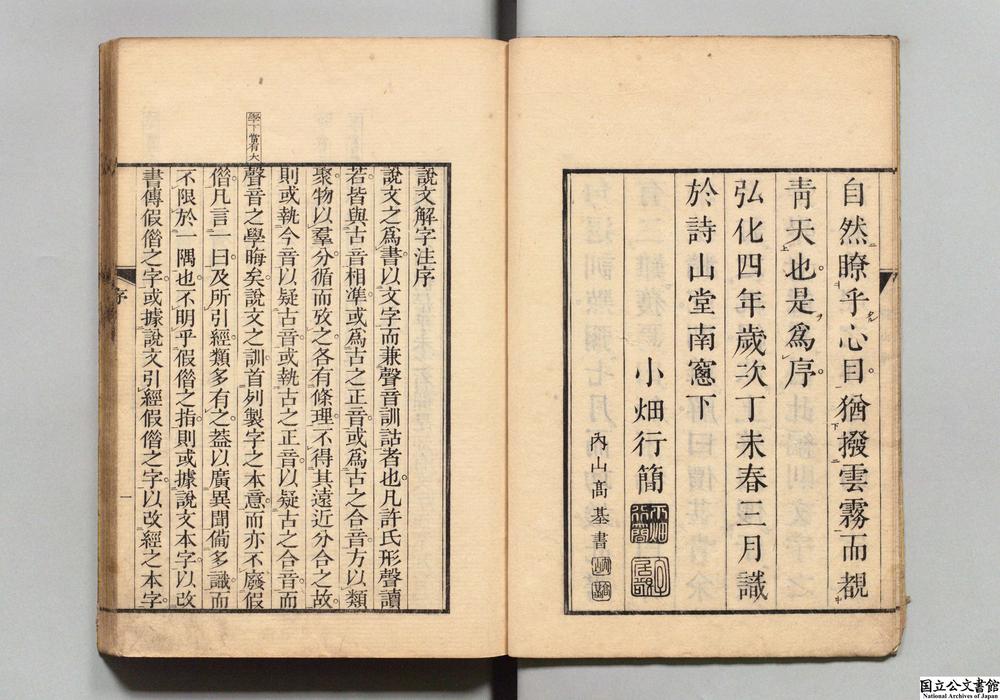 自然瞭乎心目猶撥雲霧而覩
靑天也是爲序
弘化四年歲次丁未春三月識
於詩山堂南窻下
小畑行簡
內山髙基書
說文解字注序
說文之爲書以文字而兼聲音訓詁者也凡許氏形聲讀
若皆與古音相準或爲古之正音或爲古之合音方以類
聚物以羣分循而攷之各有條理不得其遠近分合之故
則或執今音以疑古音或執古之正音以疑古之合音而
聲音之學晦矣說文之訓首列製字之本意而亦不廢假
學下當有大
偝凡言一曰及所引經類多有之葢以廣異聞僃多識而
不限於一隅也不明乎假偝之指則或據說文本字以改
書傳假偝之字或據說文引經假偝之字以改經之本字
序
一
国立公文書館
National Archives of Japan